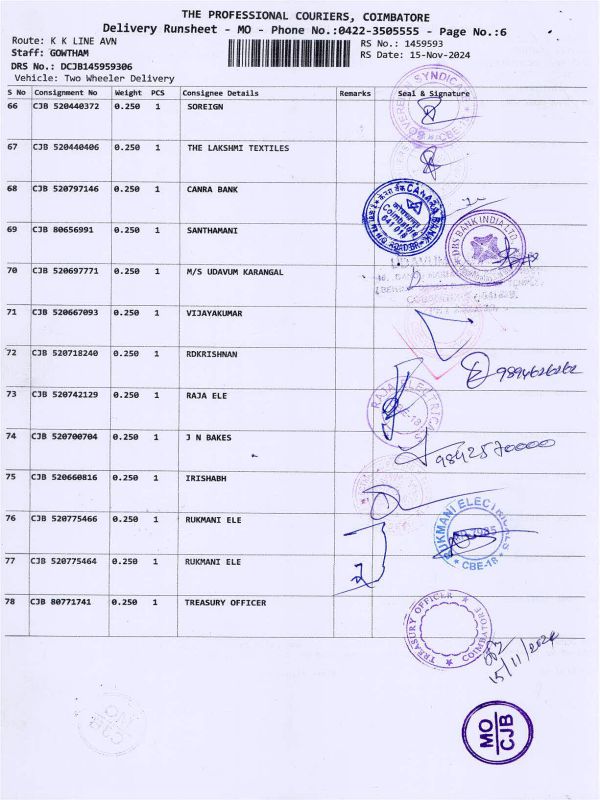 THE PROFESSIONAL COURIERS, COIMBATORE
Delivery Runsheet - MO - Phone No.:0422-3505555 - Page No.:6
Route: K K LINE AVN
RS No.: 1459593
Staff: GOWTHAM
RS Date: 15-Nov-2024
DRS No.: DCJB145959306
Vehicle: Two Wheeler Delivery
S No Consignment No Weight PCS Consignee Details Remarks Seal & Signature
66 CJB 520440372 0.250 1 SOREIGN
SYNDICATE
CBE
67 CJB 520440406 0.250 1 THE LAKSHMI TEXTILES
68 CJB 520797146 0.250 1 CANRA BANK
CANARA BANK
Coimbatore
641 018
69 CJB 80656991 0.250 1 SANTHAMANI
DBS BANK INDIA LTD
70 CJB 520697771 0.250 1 M/S UDAVUM KARANGAL
71 CJB 520667093 0.250 1 VIJAYAKUMAR
72 CJB 520718240 0.250 1 RDKRISHNAN
9894626262
73 CJB 520742129 0.250 1 RAJA ELE
RAJA ELECTRICALS
CBE-18
74 CJB 520700704 0.250 1 J N BAKES
9842570000
75 CJB 520660816 0.250 1 IRISHABH
76 CJB 520775466 0.250 1 RUKMANI ELE
RUKMANI ELECTRICALS
CBE-18
77 CJB 520775464 0.250 1 RUKMANI ELE
78 CJB 80771741 0.250 1 TREASURY OFFICER
TREASURY OFFICER
COIMBATORE
15/11/2024
MO
CJB
MO
CJB